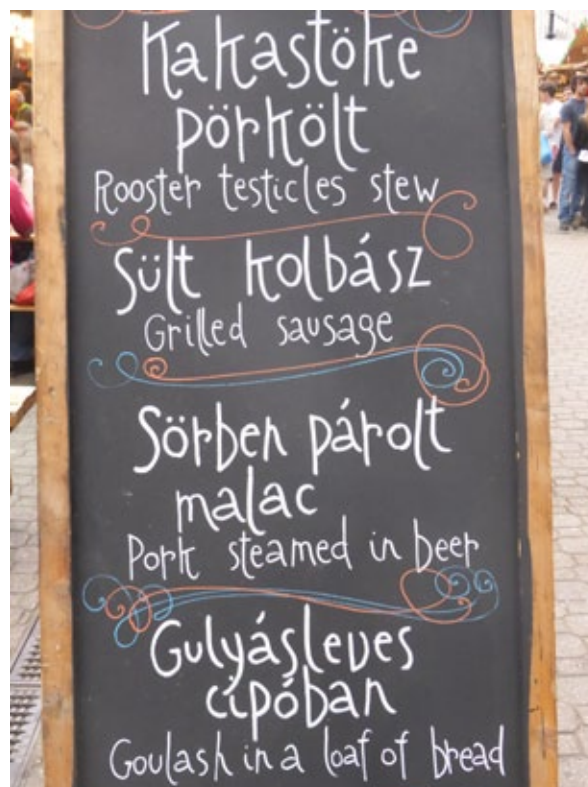 Kakastöke
pörkölt
Rooster testicles stew
Sült kolbász
Grilled sausage
Sörben párolt
malac
Pork steamed in beer
Gulyásleves
cipóban
Goulash in a loaf of bread